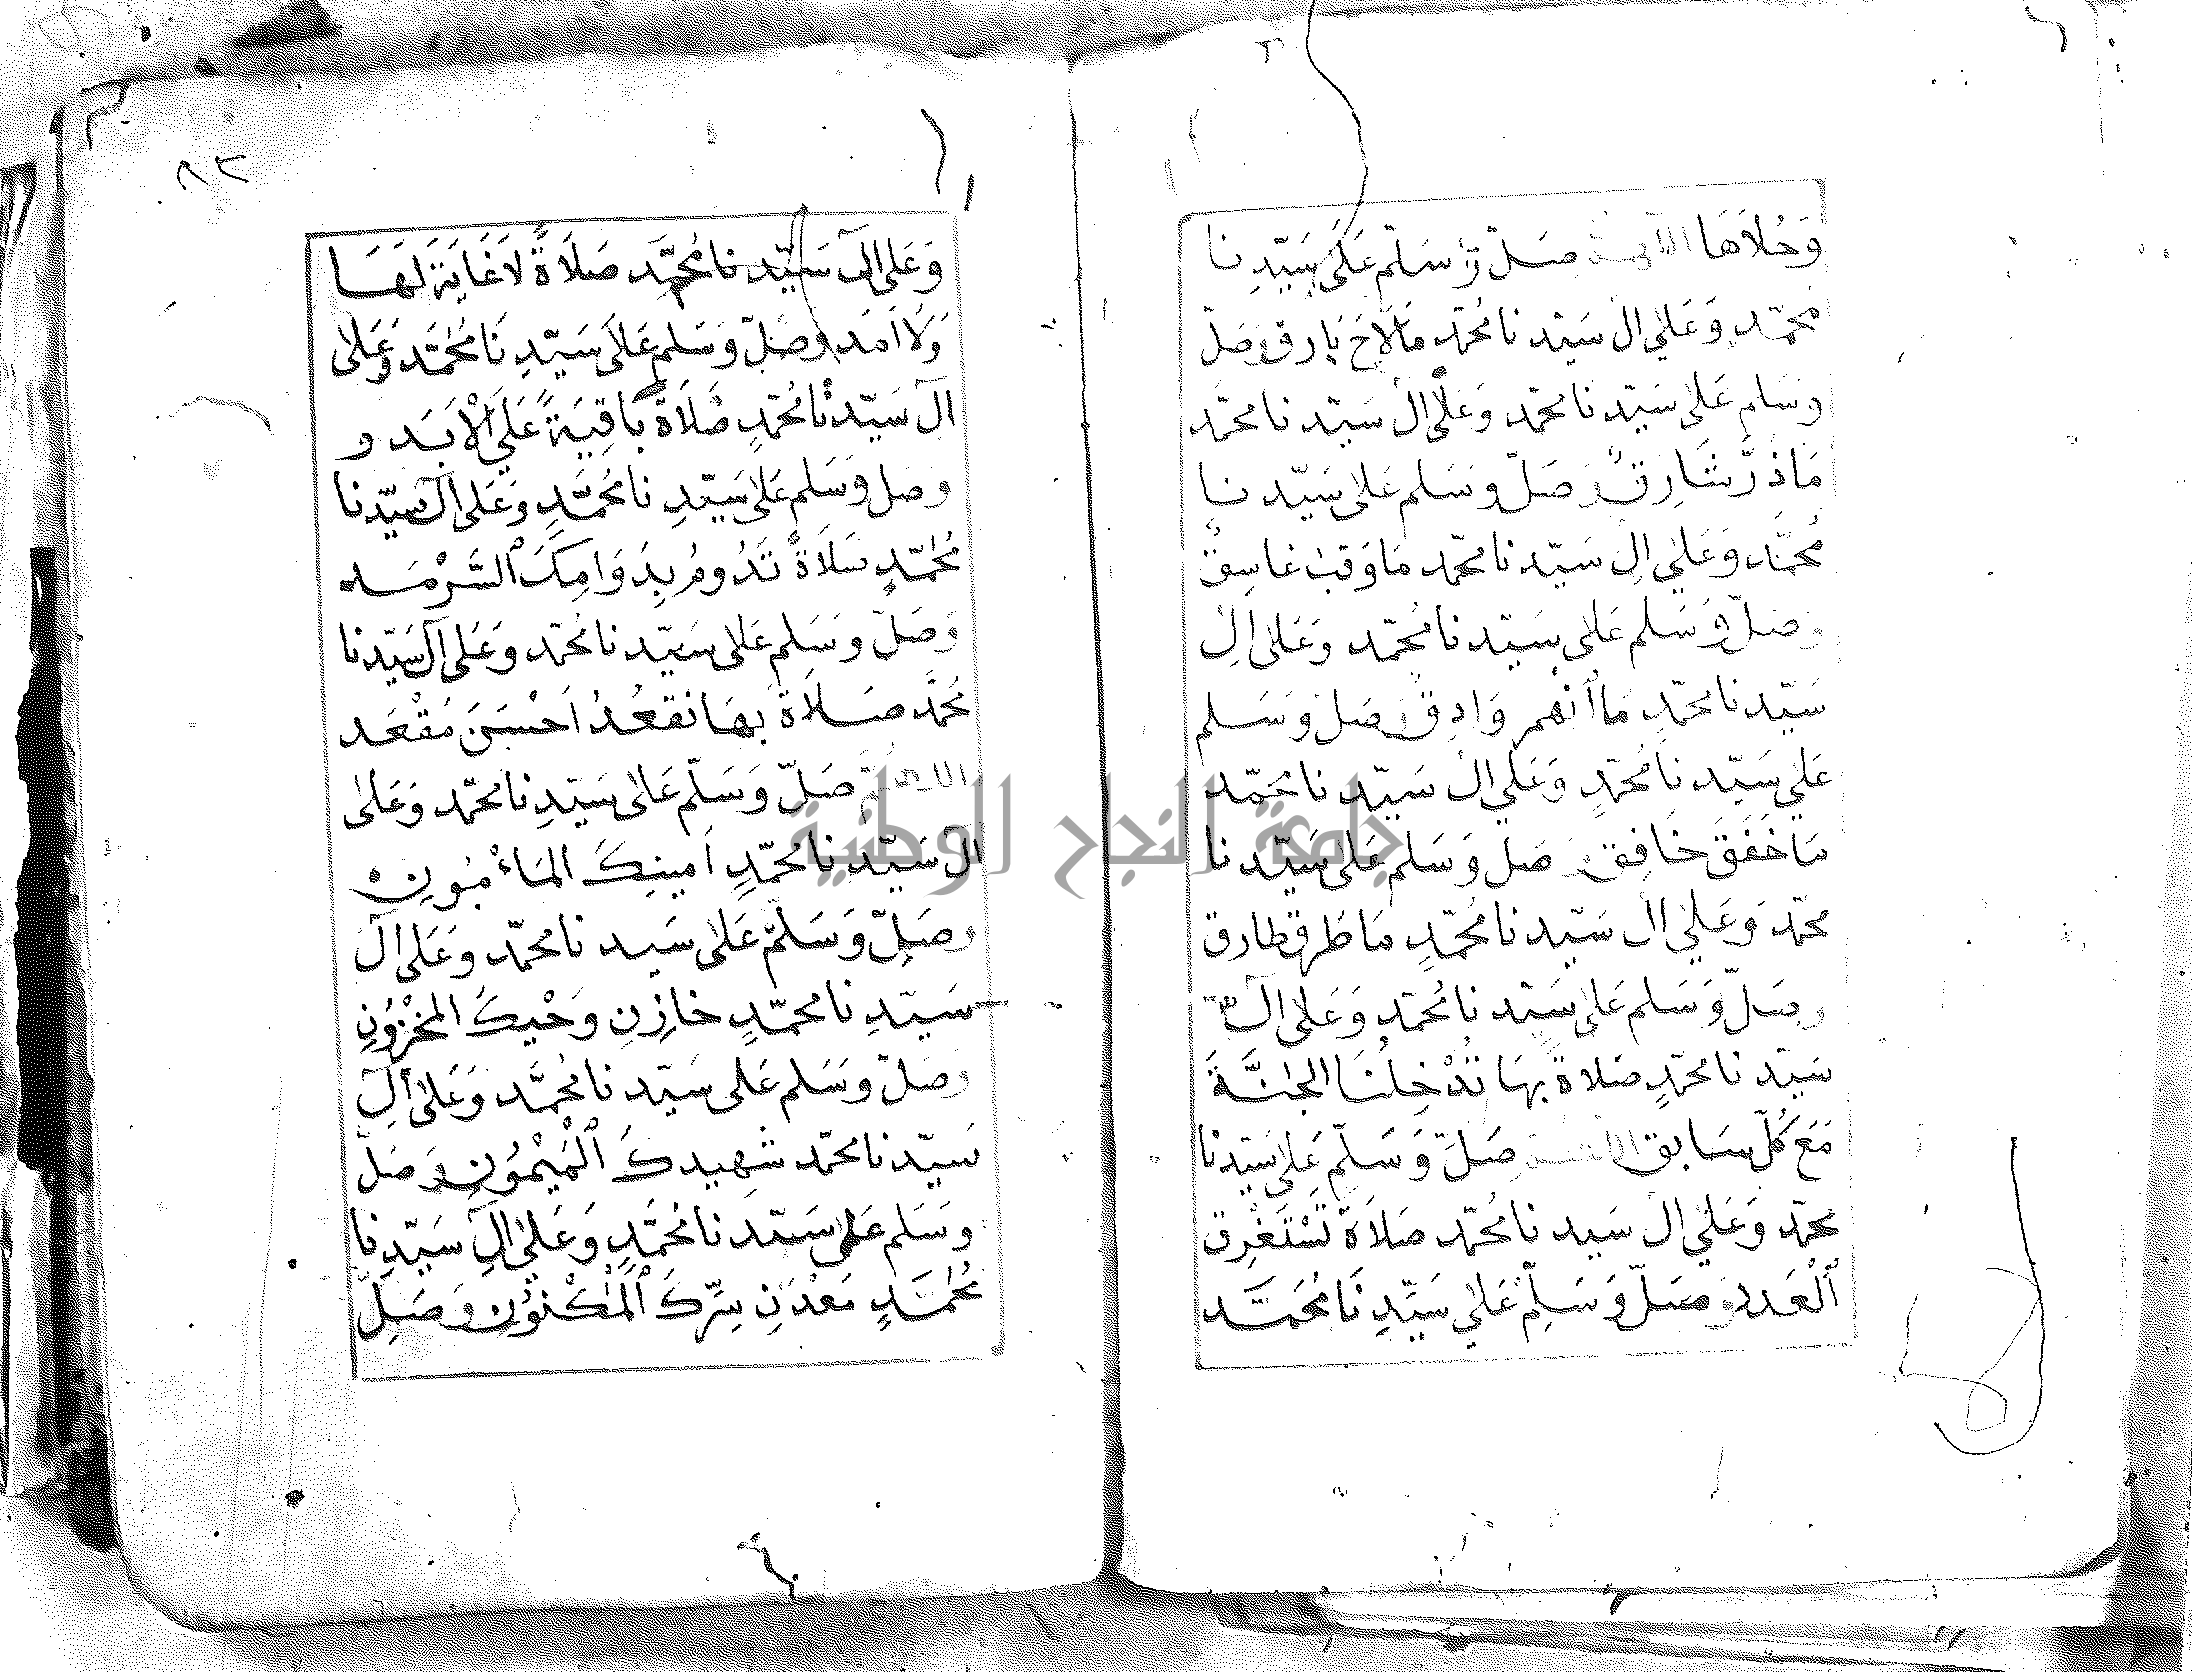 وَحُلَاهَا اللهم صَلّ وَسَلّم عَلَى سَيّدِنا
محمّد وَعَلى ال سَيّدنا مُحمّد مَالَاحَ بَارق وَصَلّ
وسَلم عَلى سيّدنا محمّد وعَلى ال سَيّدنا محمّد
مَاذَرَّ شَارِق وَصَلّ وسَلم عَلى سَيّدنا
مُحمَّد وَعَلى الِ سَيّدنا محمّد مَاوَقبَ غاسِق
وصَلّ وسَلم عَلى سيّدنا مُحمّد وَعَلى الِ
سَيّدنا محمّدٍ مَا اَنْهمر وَادِق وصَل وَسَلم
عَلى سَيّدنا مُحمّدٍ وَعَلى ال سَيّدنا محمّد
مَاخَفَقَ خَافِق وصَل وَسَلم عَلى سَيّدنا
محمّد وَعَلى ال سَيّدنا مُحمّدٍ مَاطَرق طارق
وصَلّ وَسَلم عَلى سَيّدنا مُحمّد وَعَلى ال
سَيّدنا محمّدٍ صَلاةً بهَا تُدْخِلُنَا الجنَّةَ
مَعَ كُلّ سَابق اللهم صَلّ وَسَلّم عَلى سَيّدنا
محمّد وَعَلى ال سَيدنا مُحمّد صَلَاةً تَسْتَغْرِق
اَلْعَدد وصَلّ وَسَلِّم عَلى سَيِّدِنَا مُحَمَّد
٨٢
وَعَلى ال سَيّدنا مُحَمَّد صَلَاةً لَا غَايَةَ لَهَا
وَلَا اَمَد وصَلّ وَسَلم عَلَى سَيّدِنَا مُحَمّد وَعَلى
ال سَيّدنا مُحمّدٍ صَلَاةً بَاقِيَةً عَلَى الْاَبَد و
وصَل وسَلم عَلى سَيّدِنا مُحَمَّدٍ وَعَلى ال سَيّدنا
مُحَمّدٍ صَلَاةً تَدُومُ بِدَوَامِكَ السَّرْمَد
وَصَلّ وسَلم عَلى سَيّدنا مُحمّد وَعَلى ال سَيّدنا
مُحمَّد صَلاةً بهَا نَقعُدُ اَحْسَنَ مَقْعَد
اللهم صَلّ وَسَلّم عَلى سَيّدِنا محمّد وَعَلى
ال سَيّدنا مُحمّدٍ اَمينِكَ المَاْمُونِ
وصَلّ وَسَلّم عَلى سَيدنا محمّد وَعَلى ال
سَيّدِنا محمّدٍ خازِنِ وَحْيكَ المخْزُونِ
وصَلّ وسَلم عَلى سَيّدنا مُحمَّد وَعَلى الِ
سَيّدنا محمّد شهِيدكَ اَلْمَيْمُونِ وَصَلّ
وسَلم عَلى سَيّدنا مُحَمَّدٍ وَعَلى الِ سَيّدِنا
مُحمَّدٍ مَعْدَنِ سِرّكَ اَلْمَكْنُونِ وَصَلّ
جامعة النجاح الوطنية